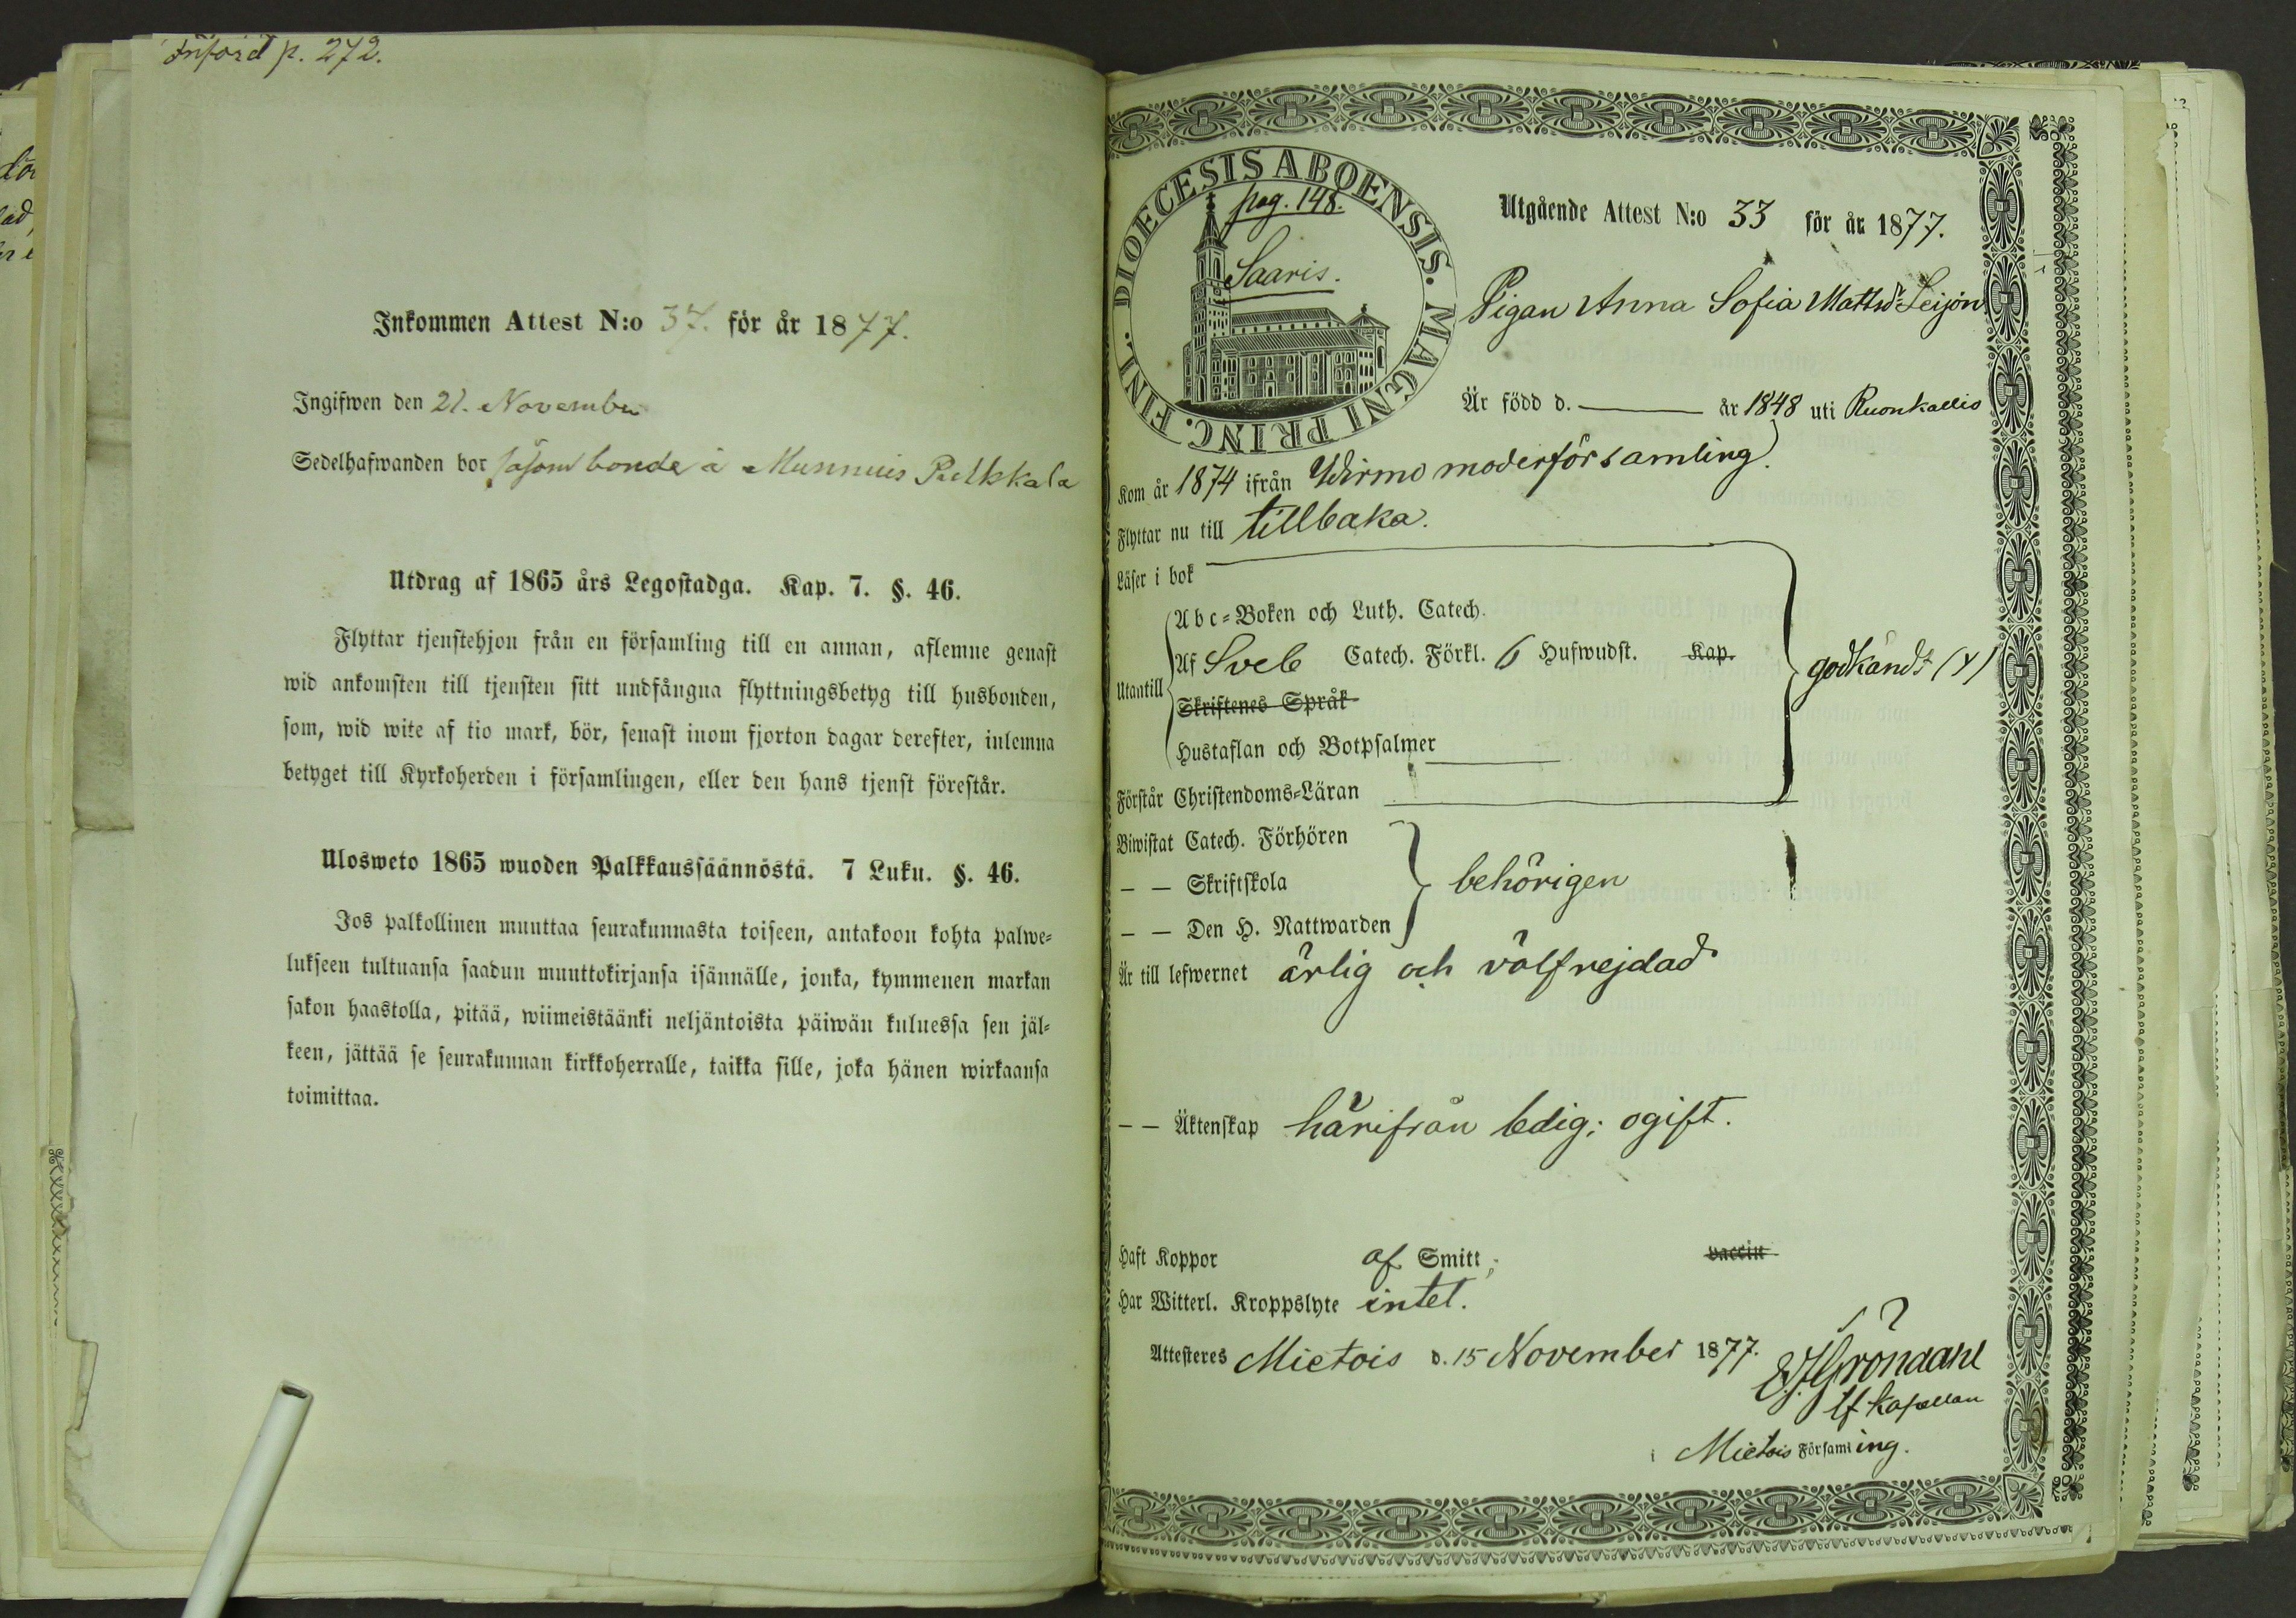 Införd p. 272.
Inkommen Attest N:o 37. för år 1877.
Ingifwen den 21. November
Sedelhafwanden bor såsom bonde å Munnuis Pulkkala
Utdrag af 1865 års Legostadga. Kap. 7. §. 46.
Flyttar tjenstehjon från en församling till en annan, aflemne genast
wid ankomsten till tjensten sitt undfångna flyttningsbetyg till husbonden,
som, wid wite af tio mark, bör, senast inom fjorton dagar derefter, inlemna
betyget till Kyrkoherden i församlingen, eller den hans tjenst förestår.
Ulosweto 1865 wuoden Palkkaussäännöstä. 7 Luku. §. 46.
Jos palkollinen muuttaa seurakunnasta toiseen, antakoon kohta palwe=
lukseen tultuansa saadun muuttokirjansa isännälle, jonka, kymmenen markan
sakon haastolla, pitää, wiimeistäänki neljäntoista päiwän kuluessa sen jäl=
keen, jättää se seurakunnan kirkkoherralle, taikka sille, joka hänen wirkaansa
toimittaa.
DIOECESIS ABOENSIS. MAGNI PRINC. FINL.
pag. 148.
Saaris.
Utgående Attest N:o 33 för år 1877.
Pigan Anna Sofia Mattsdr Leijon
Är född d. ——— år 1848 uti Ruonkallio
Kom år 1874 ifrån Wirmo moderförsamling.
Flyttar nu till tillbaka.
Läser i bok
Abc=Boken och Luth. Catech.
Utantill Af Sveb Catech. Förkl. 6 Hufwudst. Kap.
godkändt (y)
Skriftenes Språk
Hustaflan och Botpsalmer
Förstår Christendoms=Läran
Biwistat Catech. Förhören
— — Skriftskola behörigen
— — Den H. Nattwarden
Är till lefwernet ärlig och välfrejdad
— — Äktenskap härifrån ledig; ogift.
Haft Koppor af Smitt; vaccin
Har Witterl. Kroppslyte intet.
Attesteres Mietois d. 15 November 1877.
E J Gröndahl
tf kapellan
i Mietois Församling.